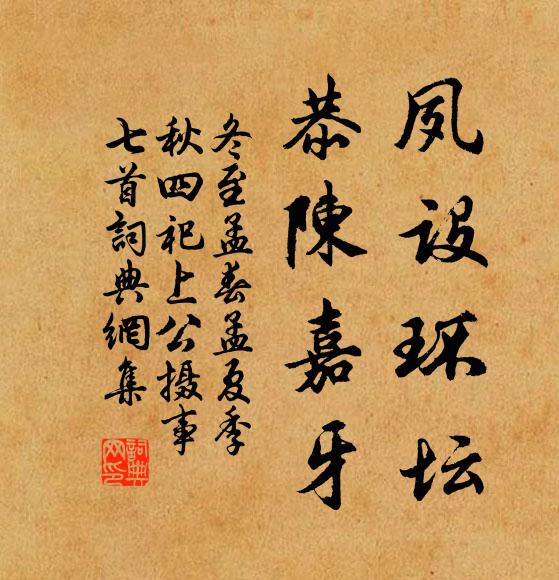 夙设环坛
恭陳嘉牙
冬至孟春孟夏季
秋四祀上公摄事
七首詞典網集
詞典
网印